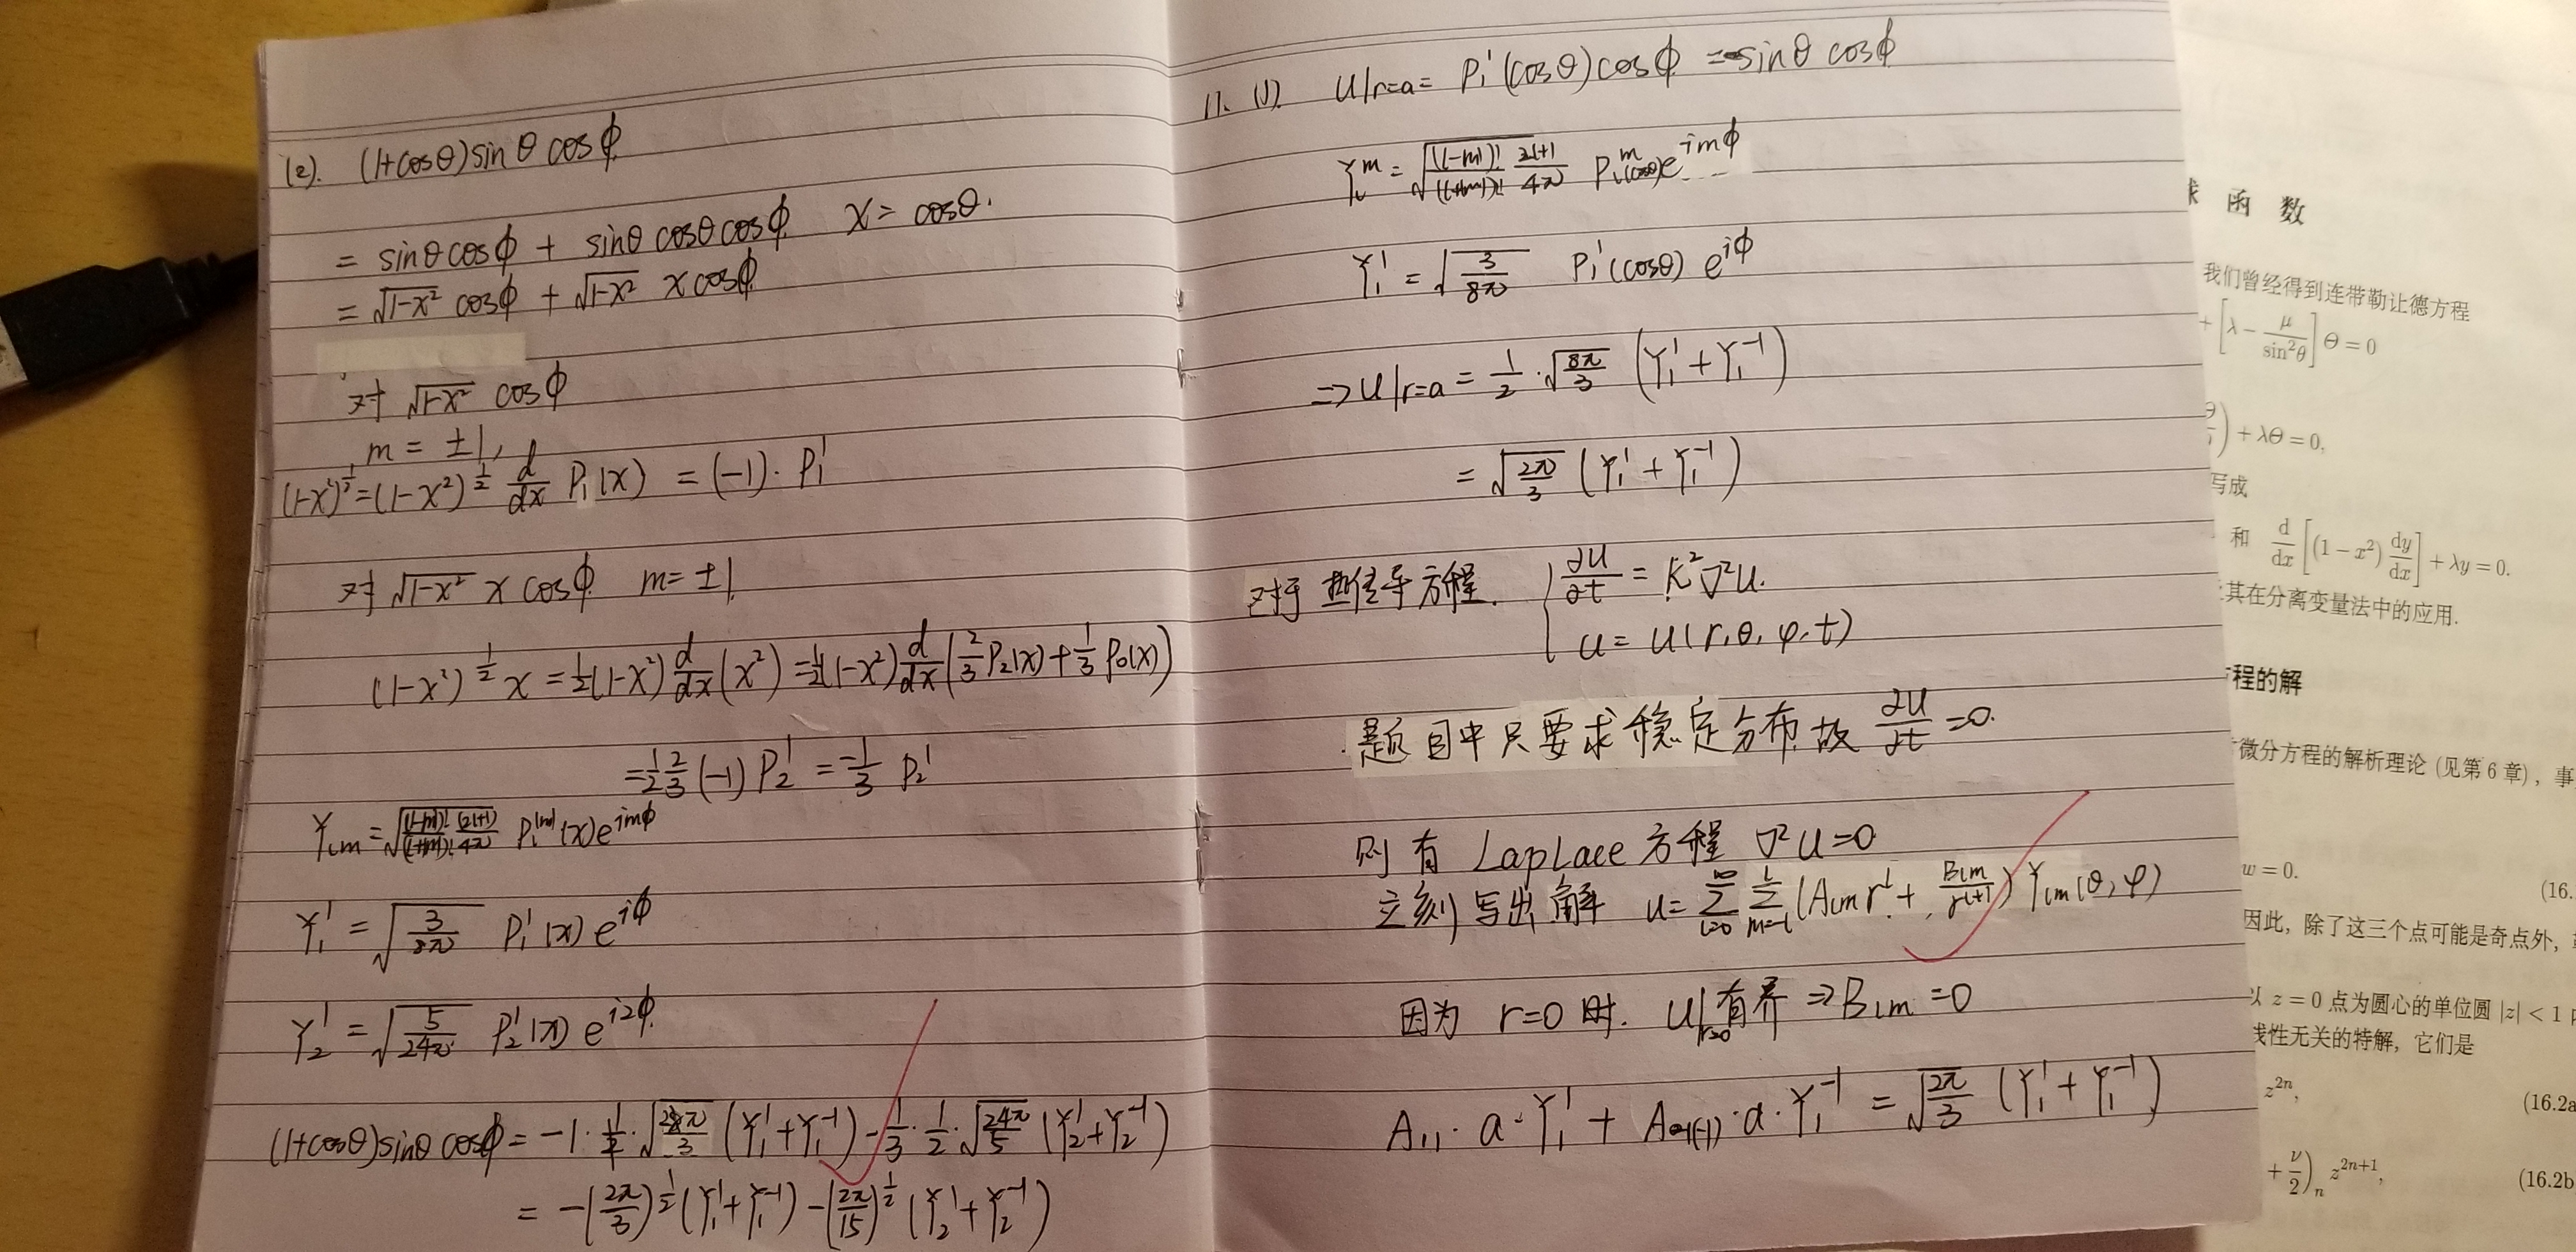 (2). (1+cosθ)sinθ cosϕ
= sinθcosϕ + sinθ cosθ cosϕ x = cosθ.
= √(1-x²) cosϕ + √(1-x²) x cosϕ
对 √(1-x²) cosϕ
m = ±1,
(1-x²)^½ = (1-x²)^½ d/dx P₁(x) = (-1)· P₁¹
对 √(1-x²) x cosϕ m = ±1
(1-x²)^½ x = ½(1-x²) d/dx (x²) = ½(1-x²) d/dx (⅔P₂(x) + ⅓P₀(x))
= ½ ⅔ (-1) P₂¹ = -⅓ P₂¹
Y_lm = √((l-|m|)!/(l+|m|)! (2l+1)/4π) P_l^|m|(x) e^{imϕ}
Y₁¹ = √(3/8π) P₁¹(x) e^{iϕ}
Y₂¹ = √(5/24π) P₂¹(x) e^{i2ϕ}
(1+cosθ)sinθ cosϕ = -1·½·√(8π/3) (Y₁¹+Y₁⁻¹) - ⅓·½·√(24π/5) (Y₂¹+Y₂⁻¹)
= -(2π/3)^½ (Y₁¹+Y₁⁻¹) - (2π/15)^½ (Y₂¹+Y₂⁻¹)
11. (1). U|r=a = P₁¹(cosθ)cosϕ = -sinθ cosϕ
Y_l^m = √((l-|m|)!/(l+|m|)! (2l+1)/4π) P_l^m(cosθ) e^{imϕ}
Y₁¹ = √(3/8π) P₁¹(cosθ) e^{iϕ}
=> U|r=a = ½·√(8π/3) (Y₁¹+Y₁⁻¹)
= √(2π/3) (Y₁¹+Y₁⁻¹)
对于 热传导方程. { ∂U/∂t = K²∇²U.
U = U(r,θ,φ,t)
题目中只要求稳定分布,故 ∂U/∂t = 0.
则有 Laplace 方程 ∇²U=0
立刻写出解 U = Σ_{l=0}^∞ Σ_{m=-l}^l (A_lm r^l + B_lm/r^{l+1}) Y_lm(θ,φ)
因为 r=0 时. U|r=0 有界 => B_lm = 0
A₁₁·a·Y₁¹ + A₁₍₋₁₎·a·Y₁⁻¹ = √(2π/3) (Y₁¹+Y₁⁻¹)
函 数
我们曾经得到连带勒让德方程
+ [λ - μ/sin²θ] Θ = 0
) + λΘ = 0,
写成
和 d/dx [(1-x²) dy/dx] + λy = 0.
其在分离变量法中的应用.
程的解
微分方程的解析理论 (见第 6 章), 事
w = 0.
(16.
因此, 除了这三个点可能是奇点外,
以 z = 0 点为圆心的单位圆 |z| < 1
线性无关的特解, 它们是
z^{2n},
(16.2a
+ ν/2)_n z^{2n+1},
(16.2b